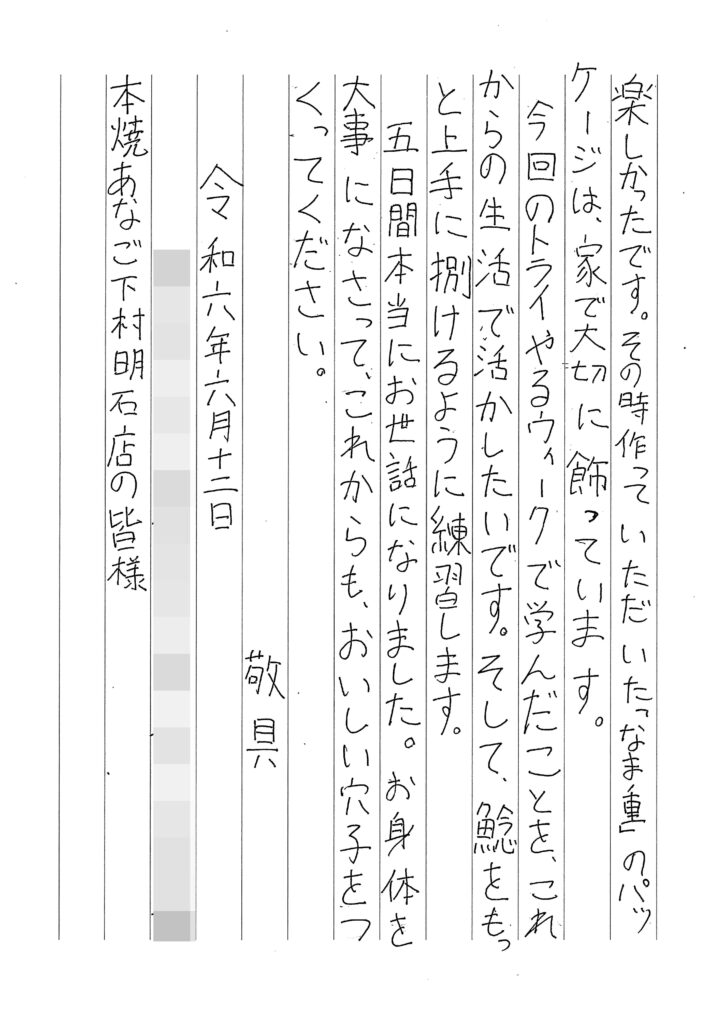 楽しかったです。その時作っていただいた「なま重」のパッ
ケージは、家で大切に飾っています。
今回のトライやるウィークで学んだことを、これ
からの生活で活かしたいです。そして、鯰をもっ
と上手に捌けるように練習します。
五日間本当にお世話になりました。お身体を
大事になさって、これからも、おいしい穴子をつ
くってください。
敬具
令和六年六月十二日
本焼あなご下村明石店の皆様